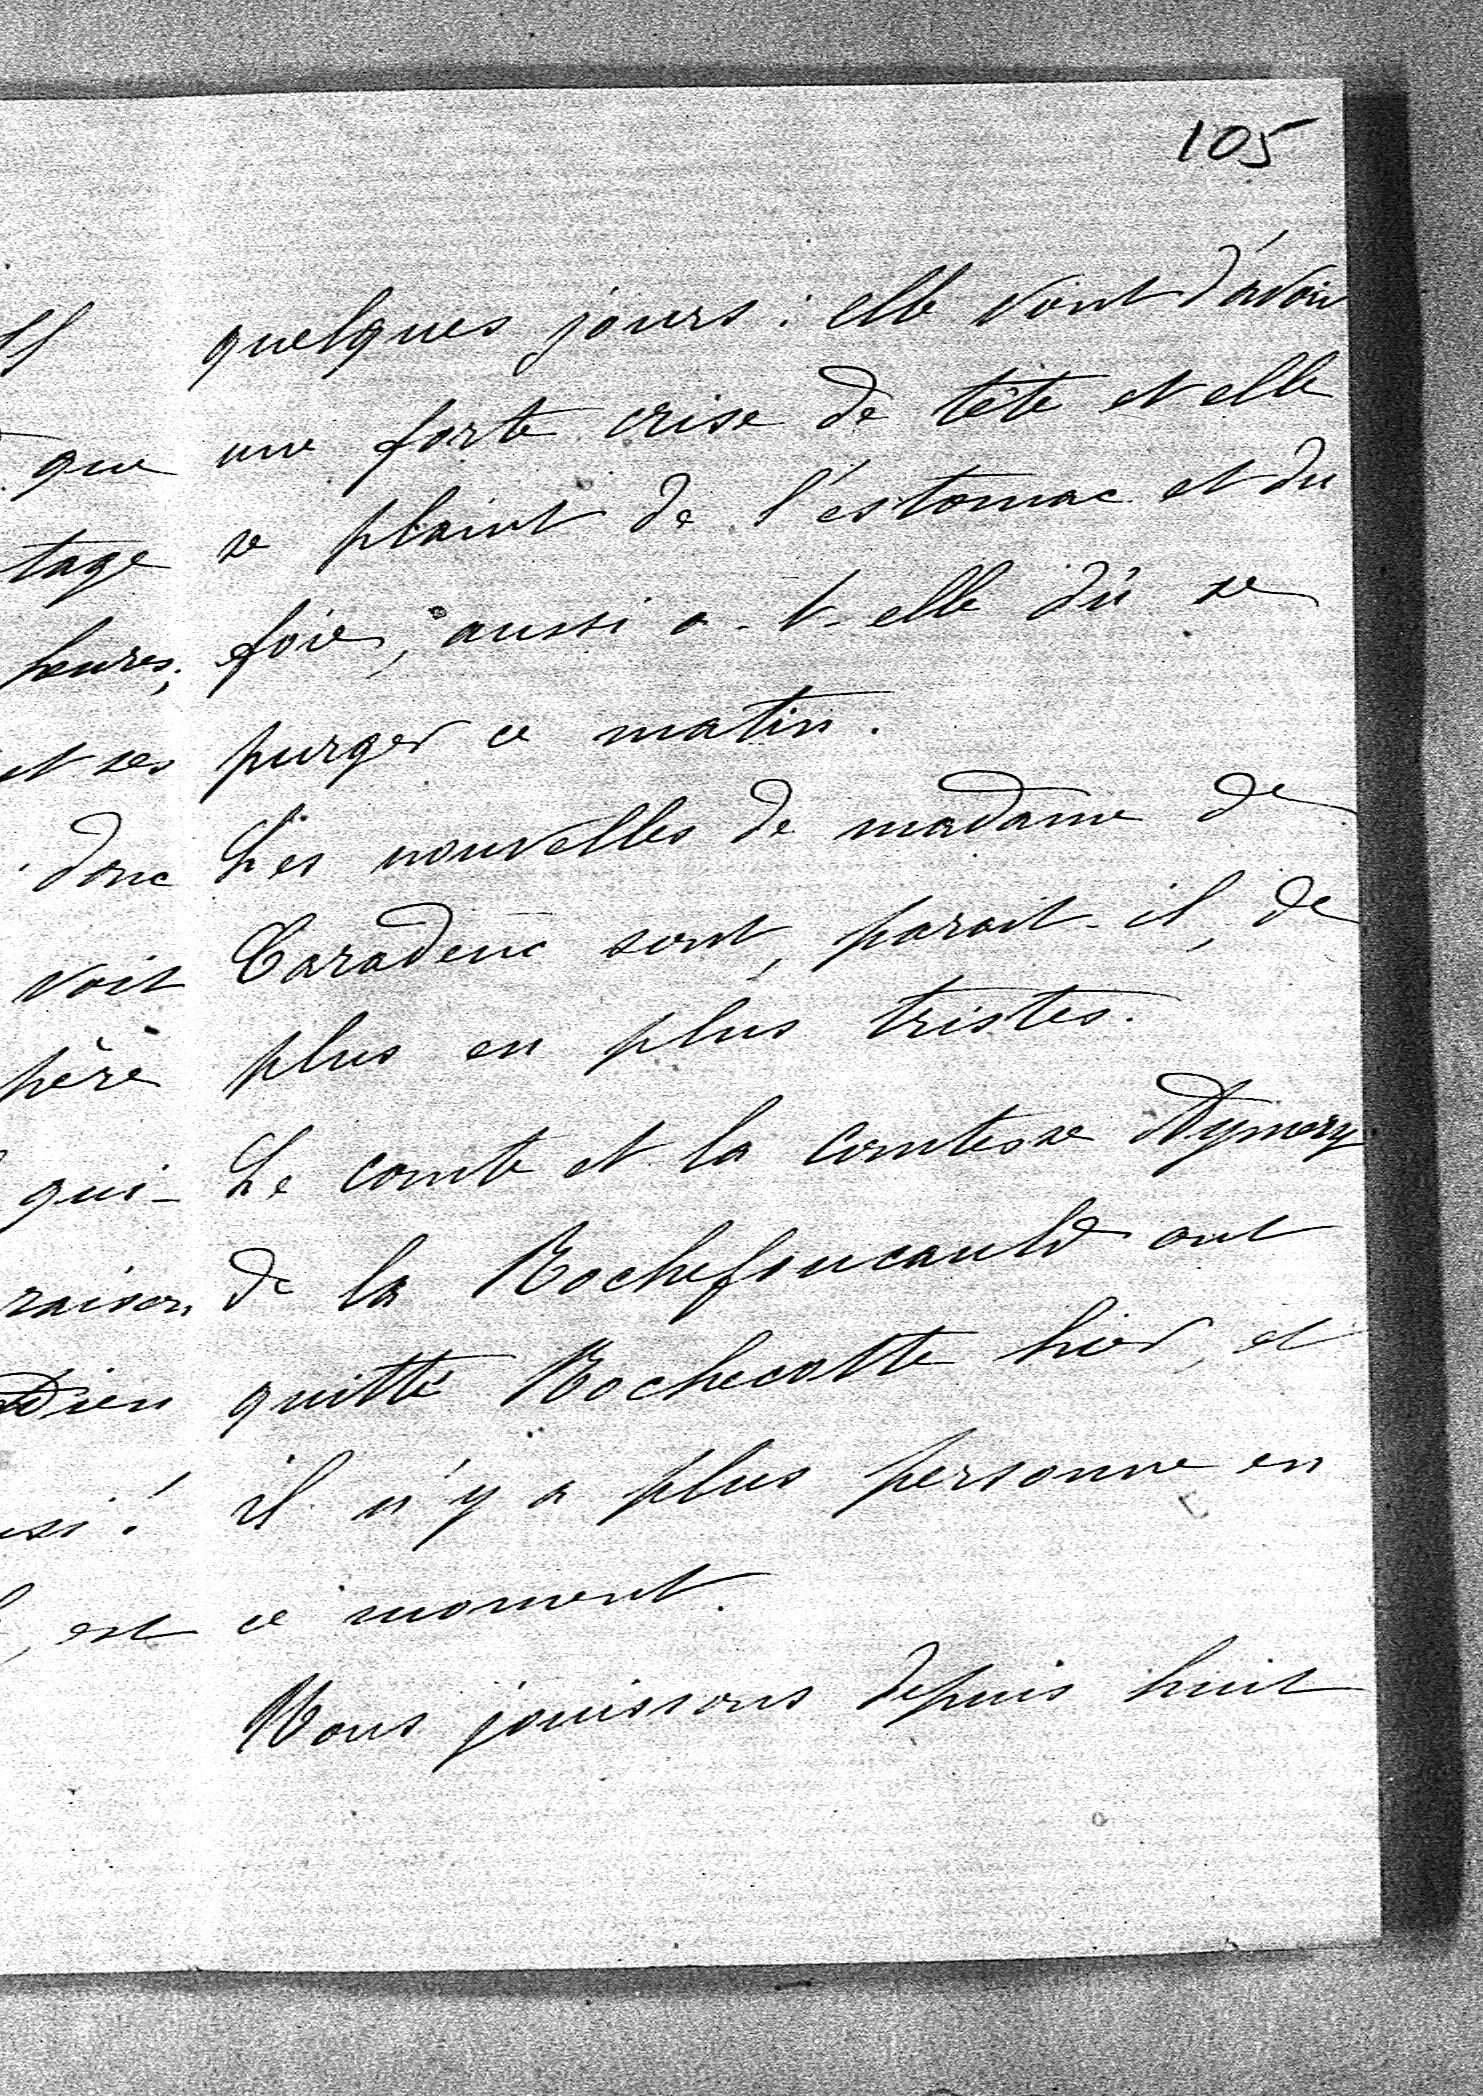 105
quelques jours : elle vient d'avoir
une forte crise de tête et elle
se plaint de l'estomac et du
foie, aussi a-t-elle dû se
purger ce matin.
Les nouvelles de madame de
Caradeuc sont, parait-il, de
plus en plus tristes.
Le comte et la comtesse Aymery
de la Rochefoucauld ont
quitté Rochecotte hier, et
il n'y a plus personne en
ce moment.
Nous jouissons depuis huit
que
tage
heures;
et ses
donc
voit
père
qui-
raison
Dieu
est